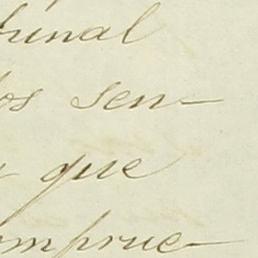 bunal
los sen-
que
omprue-